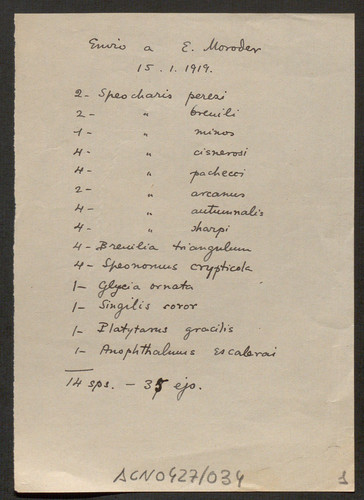 Envio a E. Moroder
15.1.1919.
2- Speocharis perezi
2- " breuili
1- " minos
4- " cisnerosi
4- " pachecoi
2- " arcanus
4- " autumnalis
4- " sharpi
4- Breuilia triangulum
4- Speonomus crypticola
1- Glycia ornata
1- Singilis soror
1- Platytarus gracilis
1- Anophthalmus escalerai
14 sps. - 35 ejo.
ACN0427/034
1